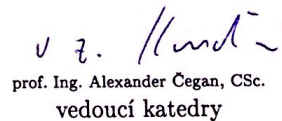 v z.
prof. Ing. Alexander Čegan, CSc.
vedoucí katedry